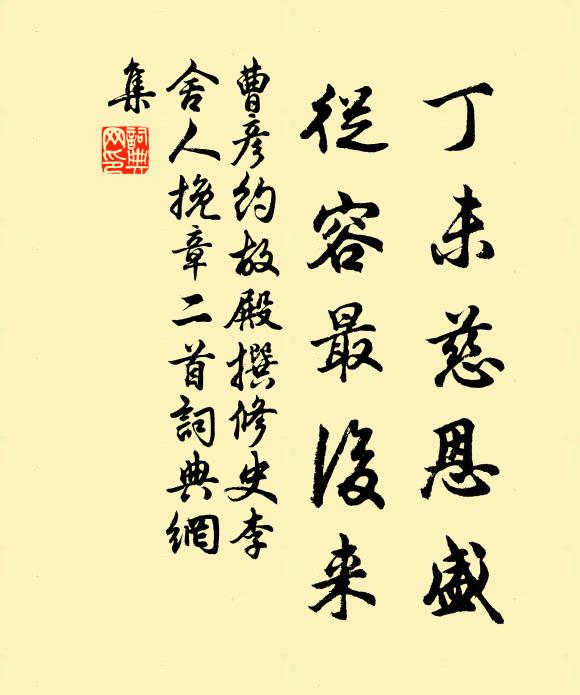 丁未慈恩盛
從容最後来
曹彦約故殿撰修史李
舍人挽章二首詞典網
集
詞典
网印